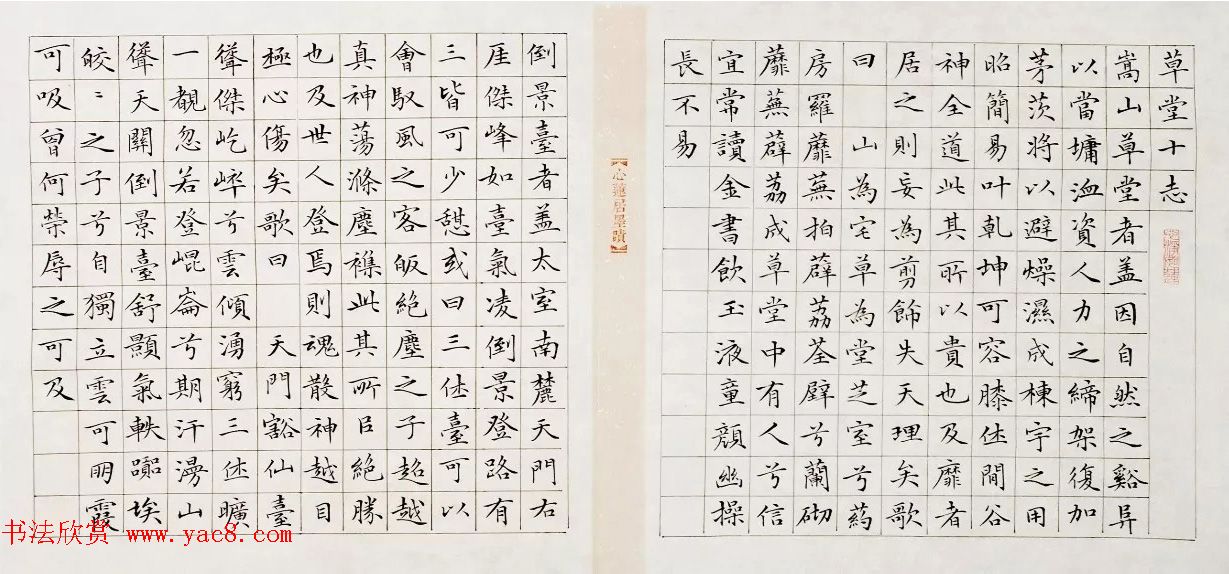 草堂十志
嵩山草堂者盖因自然之谿阜
以當墉洫資人力之締架復加
茅茨將以避燥濕成棟宇之用
昭簡易叶乾坤可容膝休間谷
神全道此其所以貴也及靡者
居之則妄為剪飾失天理矣歌
曰 山為宅草為堂芝室兮葯
房羅蘼蕪拍薜荔荃壁兮蘭砌
蘼蕪薜荔成草堂中有人兮信
宜常讀金書飲玉液童顏幽操
長不易
【心蓮居墨蹟】
倒景臺者盖太室南麓天門右
厓傑峰如臺氣凌倒景登路有
三皆可少憇或曰三休臺可以
會馭風之客皈絕塵之子超越
真神蕩滌塵襟此其所臣絕勝
也及世人登焉則魂散神越目
極心傷矣歌曰 天門豁仙臺
聳傑屹崪兮雲傾湧窮三休曠
一覩忽若登崐崙兮期汗漫山
聳天關倒景臺舒顥氣軼囂埃
皎〻之子兮自獨立雲可朙霞
可吸曾何榮辱之可及
书法欣赏 www.yac8.com